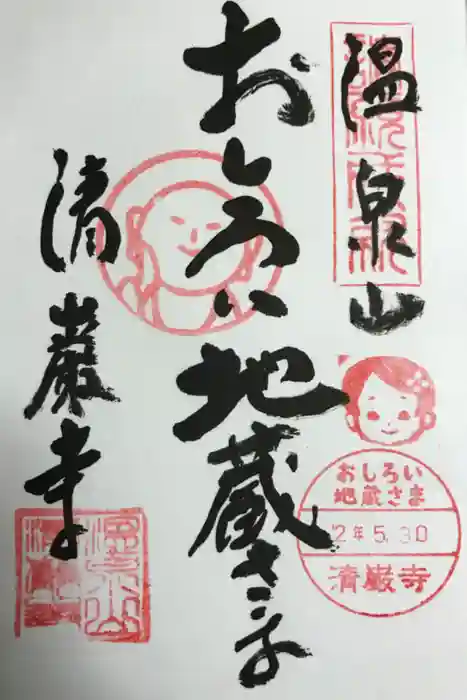 温泉山
おしろい地蔵さま
清巌寺
おしろい
地蔵さま
2年5.30
清巌寺